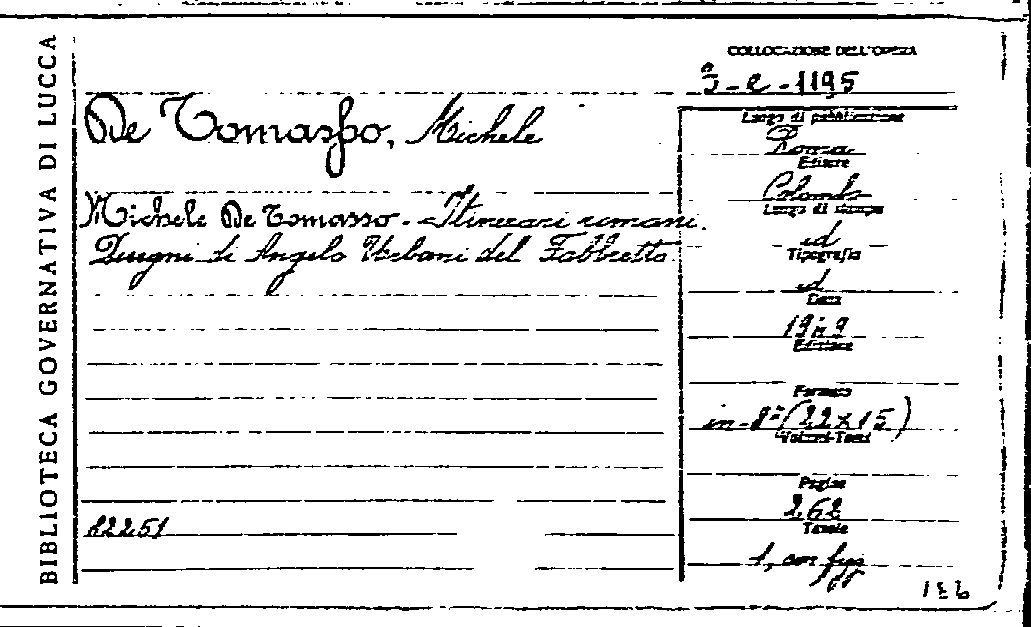 BIBLIOTECA GOVERNATIVA DI LUCCA
COLLOCAZIONE DELL'OPERA
I-e-1195
De Tomasso, Michele
Luogo di pubblicazione
Roma
Editore
Colombo
Luogo di stampa
id
Tipografia
id
Data
Michele De Tomasso. - Itinerari romani.
Disegni di Angelo Urbani del Fabbretto
Edizione
Formato
in-8° (22x15)
Volumi-Tomi
Pagine
262
Tavole
1, con figg
82251
136